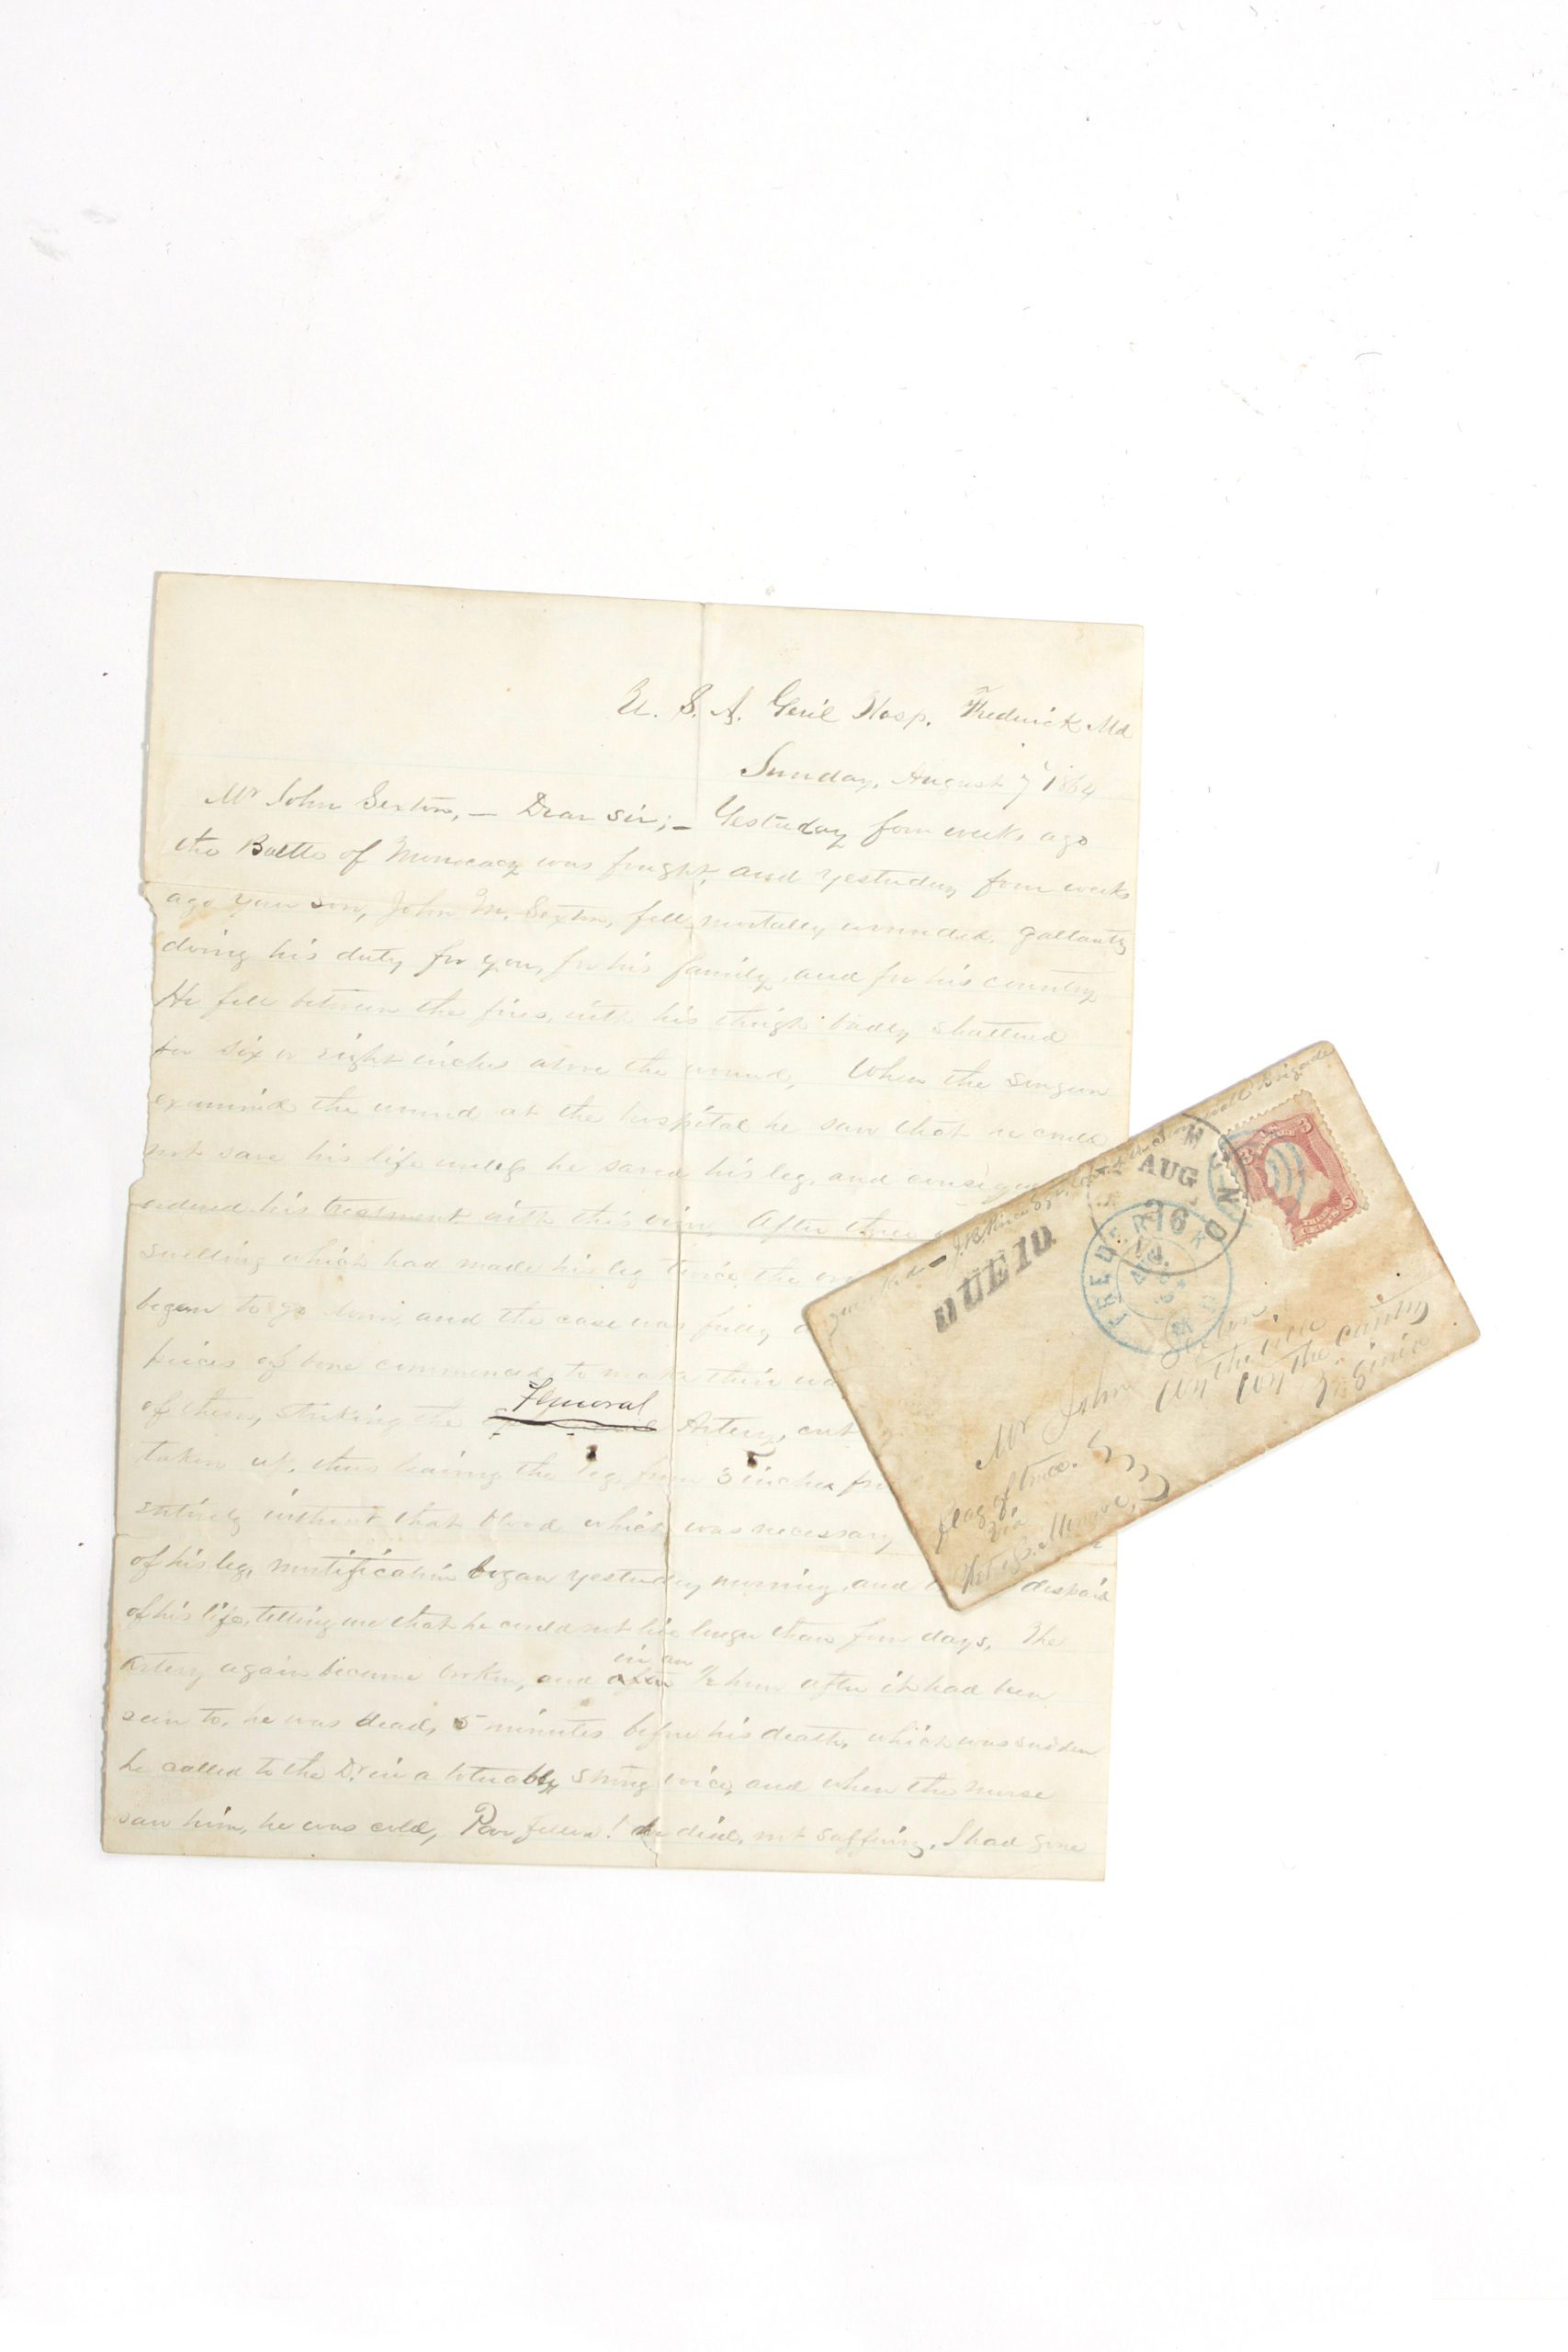 U. S. A. Gen'l Hosp. Frederick Md
Sunday, August 7 1864
Mr John Sexton, — Dear Sir; — Yesterday four weeks ago
the Battle of Monocacy was fought, and yesterday four weeks
ago your son, John M. Sexton, fell mortally wounded, gallantly
doing his duty for you, for his family, and for his country
He fell between the fires, with his thigh badly shattered
for six or eight inches above the wound, When the surgeon
examined the wound at the hospital he saw that he could
not save his life unless he saved his leg, and
ordered his treatment with this view, After three
swelling which had made his leg twice the
began to go down, and the case was fully
pieces of bone commenced to make their
of them, striking the Femoral Artery, cut
taken up, thus leaving the leg from 3 inches
entirely without that blood which was necessary
of his leg, mortification began yesterday morning, and despaired
of his life, telling me that he could not live longer than four days, The
Artery again became broken, and in an 1/2 hour after it had been
seen to, he was dead, 5 minutes before his death, which was sudden
he called to the Dr in a tolerably strong voice, and when the nurse
saw him, he was cold, Poor fellow! he died, not suffering, I had gone
Brigade
DUE 10
AUG
26
FREDERICK
MD
THREE CENTS
Mr John Sexton
Wytheville
Wythe county
Virginia
flag of truce
via
Fort. Monroe